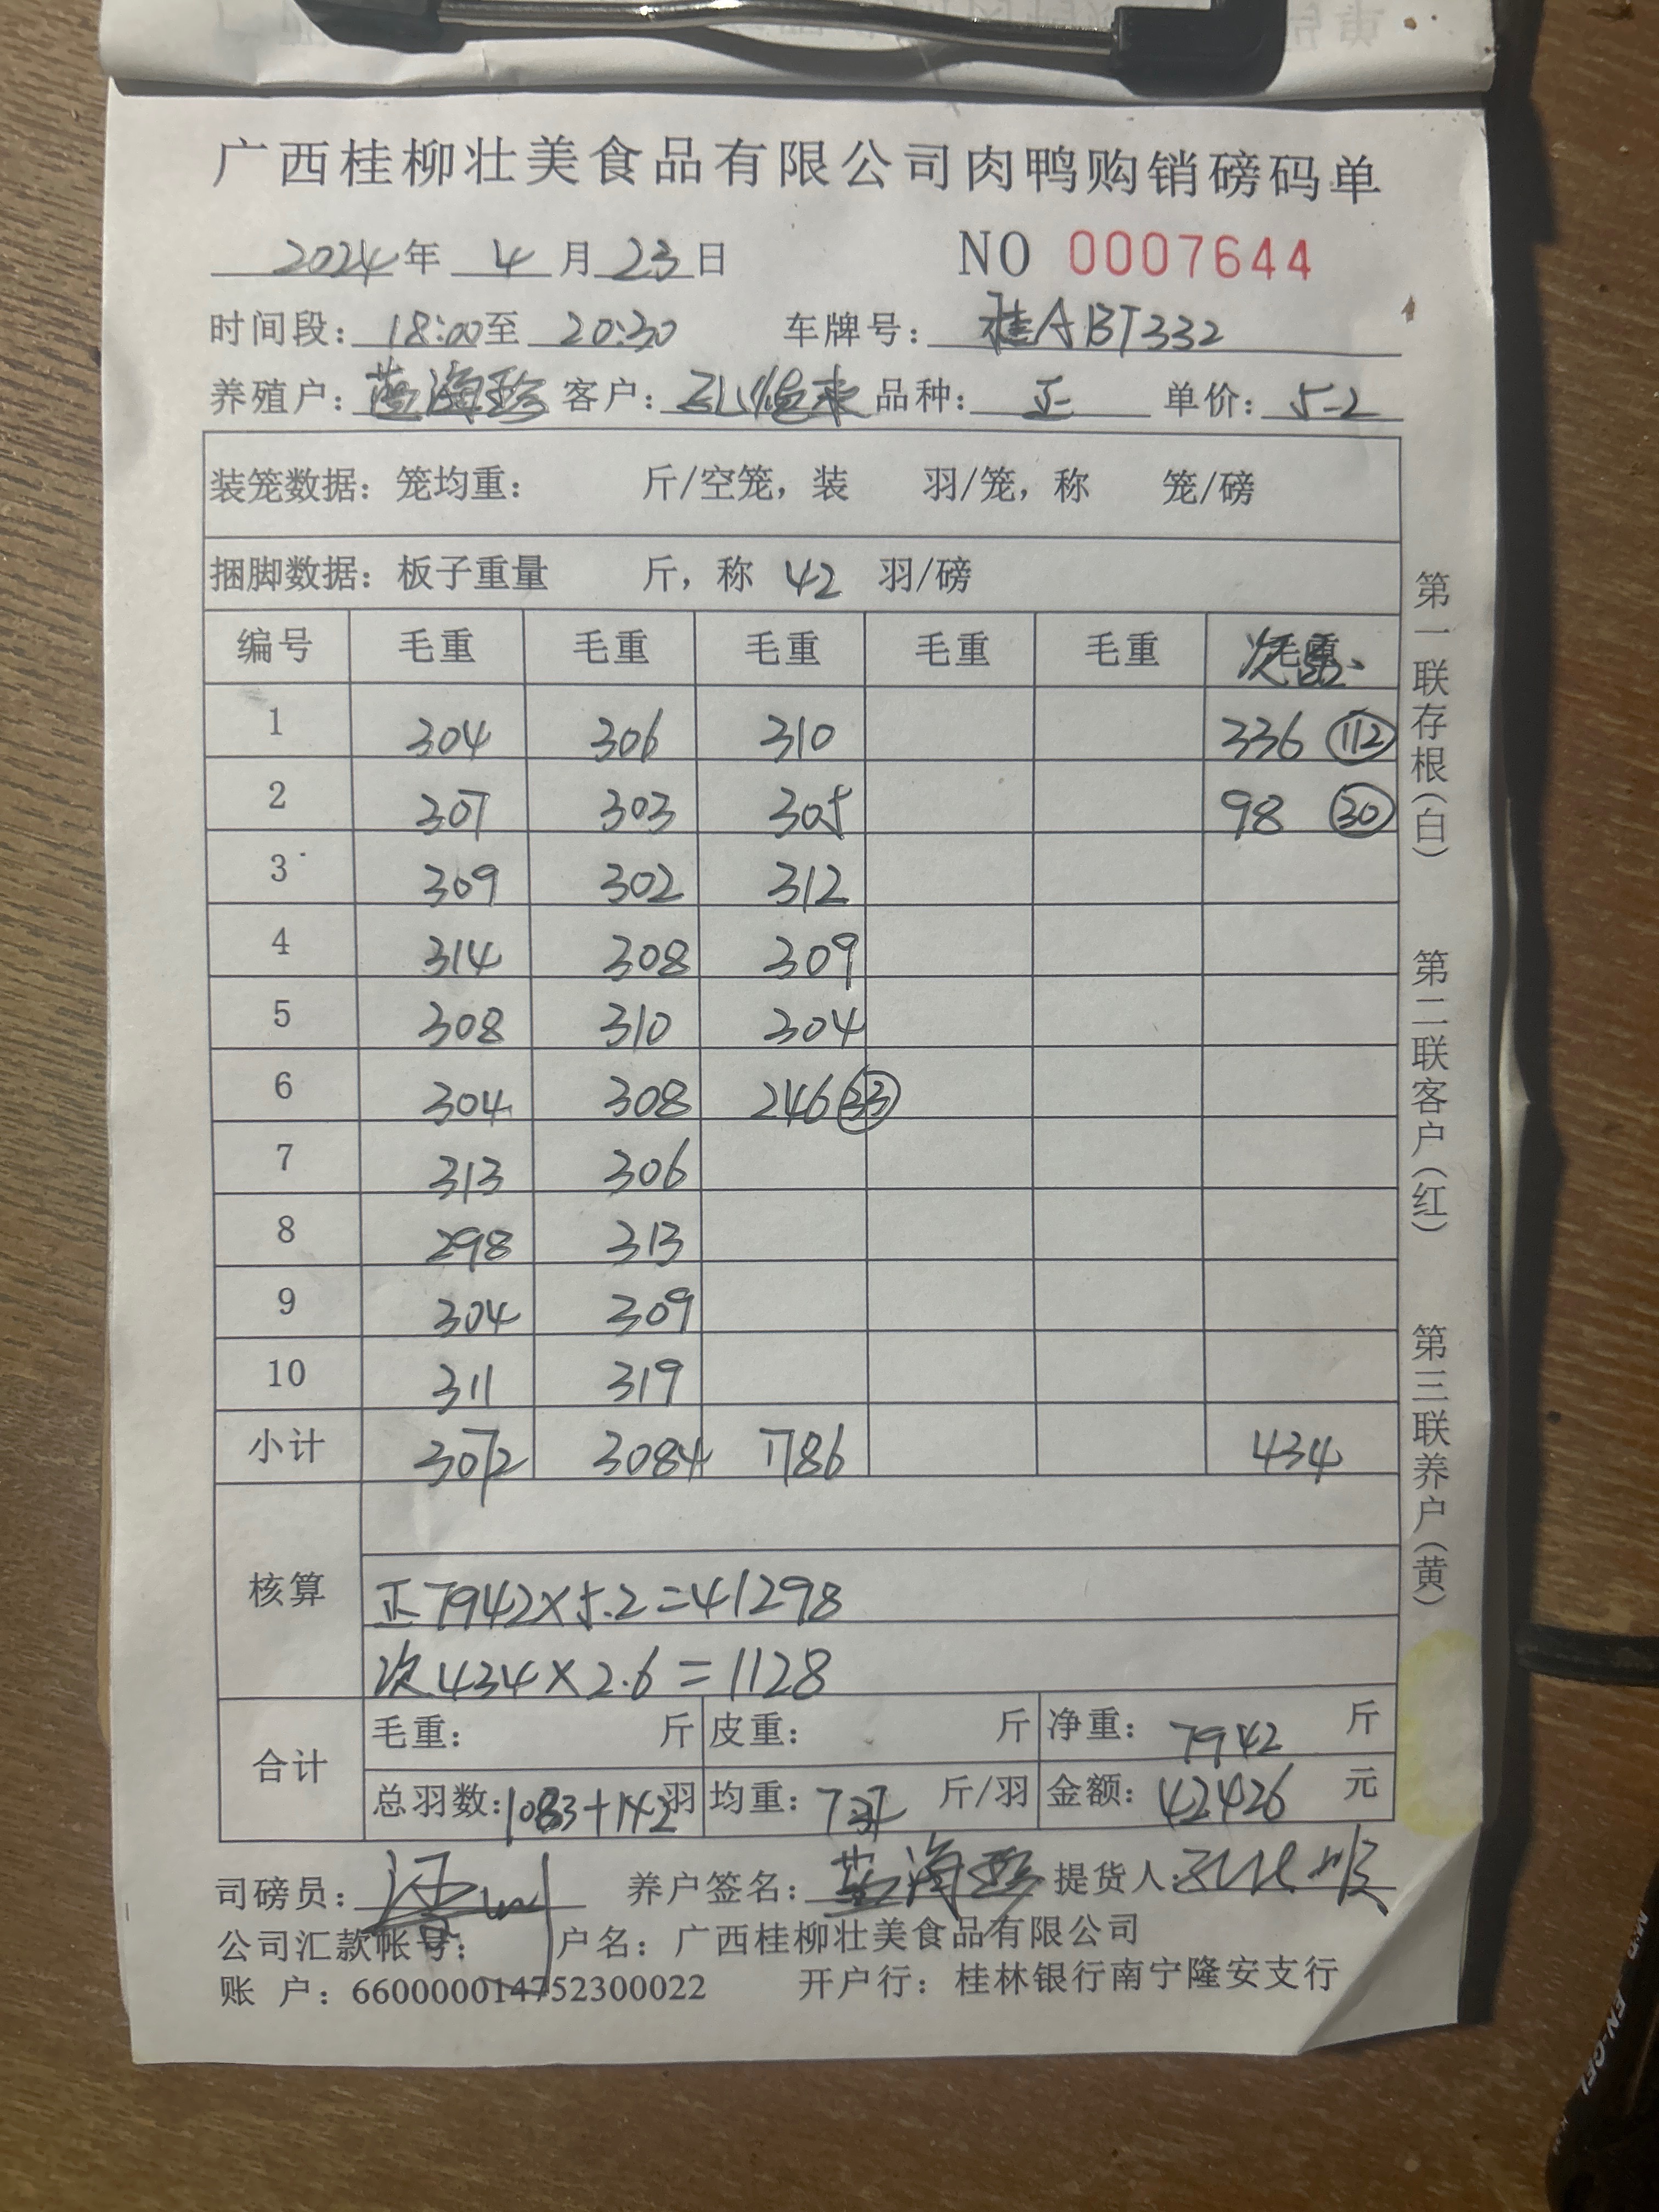 广西桂柳壮美食品有限公司肉鸭购销磅码单
2024年 4月23日 NO 0007644
时间段：18:00至 20:30 车牌号：桂ABT332
养殖户：蓝海珍 客户： 品种：正 单价：5.2
装笼数据：笼均重： 斤/空笼，装 羽/笼，称 笼/磅
捆脚数据：板子重量 斤，称 42 羽/磅
编号 毛重 毛重 毛重 毛重 毛重 毛重
1 304 306 310 336 112
2 307 303 305 98 30
3 309 302 312
4 314 308 309
5 308 310 304
6 304 308 246 33
7 313 306
8 298 313
9 304 309
10 311 319
小计 3072 3084 1786 434
核算
正7942×5.2=41298
次434×2.6=1128
合计
毛重： 斤 皮重： 斤 净重：7942 斤
总羽数：1083+142羽 均重：7.37 斤/羽 金额：42426 元
司磅员： 养户签名：蓝海珍 提货人：
公司汇款帐号： 户名：广西桂柳壮美食品有限公司
账 户：660000014752300022 开户行：桂林银行南宁隆安支行
第一联存根（白） 第二联客户（红） 第三联养户（黄）